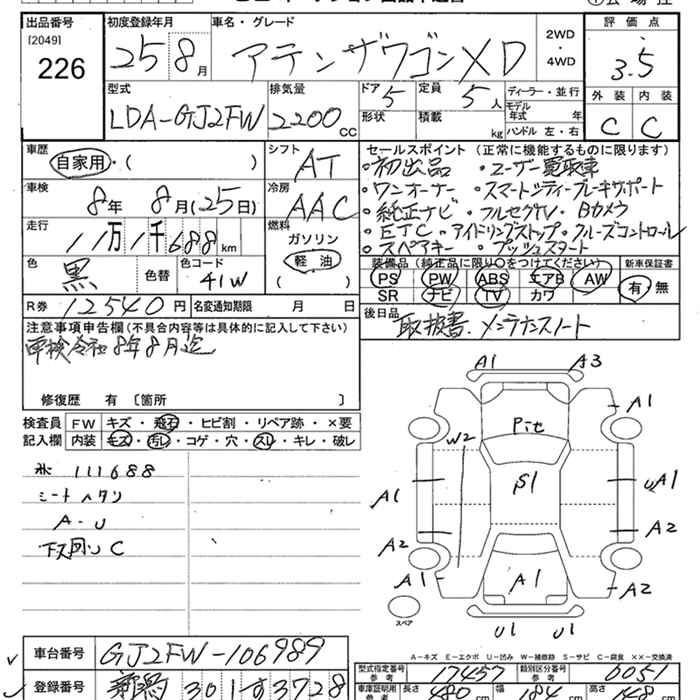 出品番号 初度登録年月 車名・グレード 2WD 評価点
[2049]
226 25 8月 アテンザワゴン XD ・ 4WD 3.5
型式 排気量 ドア 5 定員 5人 ディーラー・並行 外装 内装
LDA-GJ2FW 2200cc 形状 積載 kg モデル年式 年 ハンドル 左・右 C C
車歴 シフト セールスポイント (正常に機能するものに限ります)
自家用・( ) AT ・初出品 ・ユーザー買取車
車検 8年 8月(25日) 冷房 AAC ・ワンオーナー ・スマートシティーブレーキサポート
・純正ナビ ・フルセグTV ・Bカメラ
走行 11万1千688km 燃料 ・ETC ・アイドリングストップ ・クルーズコントロール
ガソリン ・スペアキー ・プッシュスタート
色 黒 色替 色コード 41W 軽油 装備品(純正品に限り○をつけてください) 新車保証書
( ) PS PW ABS エアB AW 有・無
R券 12540円 名変通知期限 月 日 SR ナビ TV カワ
注意事項申告欄(不具合内容等は具体的に記入して下さい) 後日品 取扱書、メンテナンスノート
車検令和8年8月迄
修復歴 有 〔箇所 〕
検査員 FW キズ・飛石・ヒビ割・リペア跡・×要
記入欄 内装 キズ・汚レ・コゲ・穴・スレ・キレ・破レ
A1 A3
A1
W2 Pit
111688
シートヘタリ
A1 S1 UA1
A-U
A2 A2
下廻リC
A1 A1 A2
スペア
U1 U1
A-キズ E-エクボ U-凹み W-補修跡 S-サビ C-腐食 ××-交換済
車台番号 GJ2FW-106989
型式指定番号 参考 17457 類別区分番号 参考 0051
登録番号 新潟 301 す 3728
車庫証明用 参考 長さ 480cm 幅 184cm 高さ cm